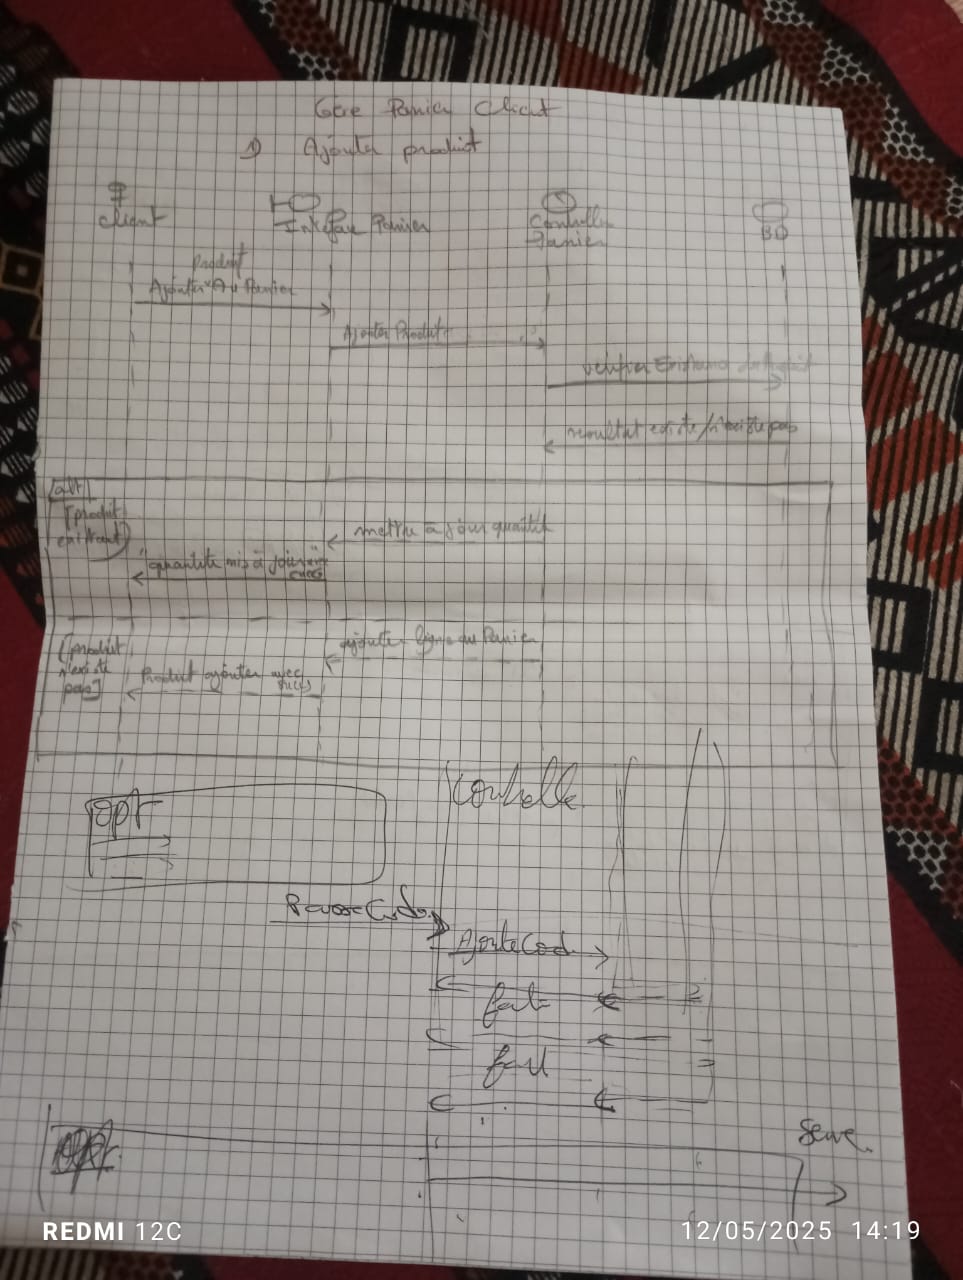 Gére Panier Client
1) Ajouter produit
client
Interface Panier
Controlle
Panier
BD
produit
Ajouter Au Panier
Ajouter Produit
vérifier Existance
resultat existe/n'existe pas
alt
[produit
existant]
mettre à jour quantité
"quantité mis à jour avec
succés"
[produit
n'existe
pas]
ajouter ligne au Panier
Produit ajouter avec
succés
opt
Controlle
Passe
Ajoute Cod
Save
REDMI 12C
12/05/2025 14:19